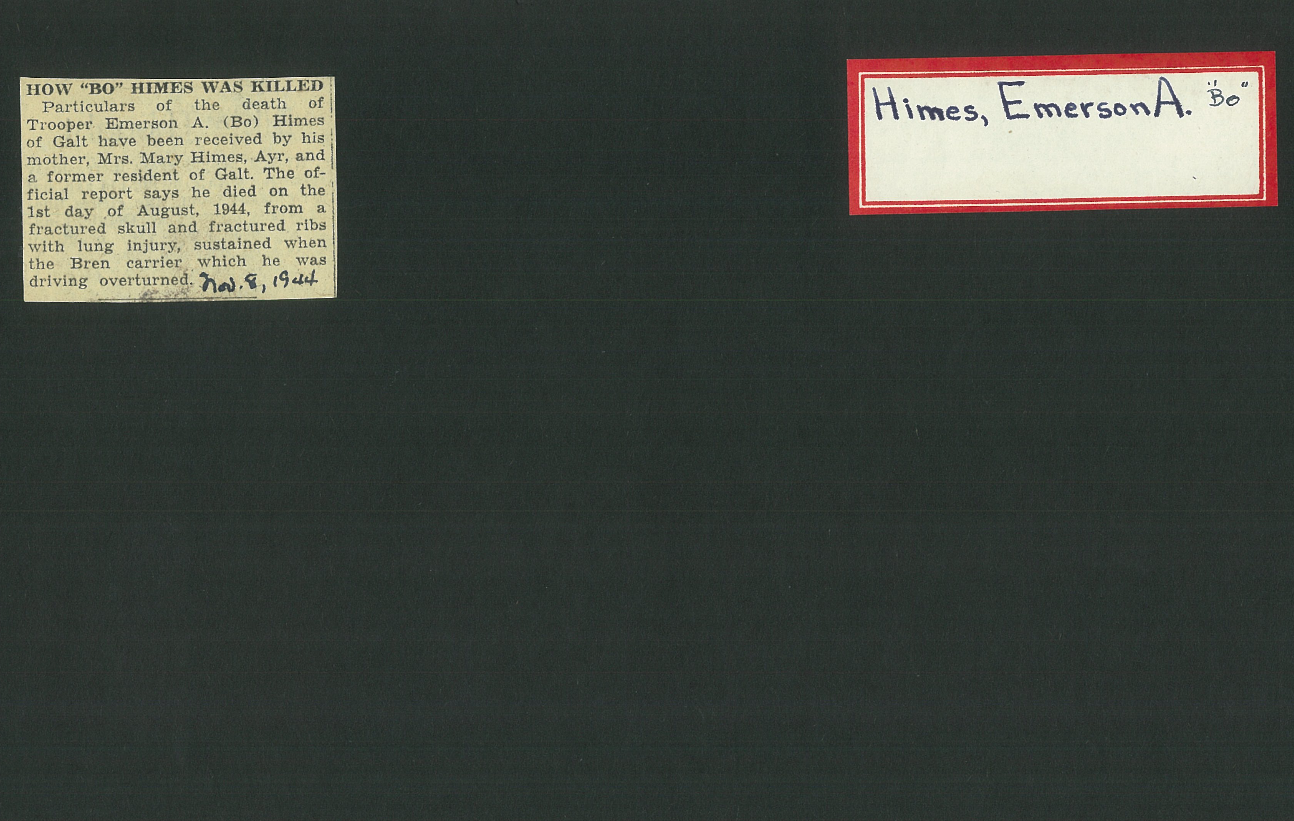 HOW "BO" HIMES WAS KILLED
Particulars of the death of
Trooper Emerson A. (Bo) Himes
of Galt have been received by his
mother, Mrs. Mary Himes, Ayr, and
a former resident of Galt. The of-
ficial report says he died on the
1st day of August, 1944, from a
fractured skull and fractured ribs
with lung injury, sustained when
the Bren carrier which he was
driving overturned. Nov. 8, 1944
Himes, Emerson A. "Bo"